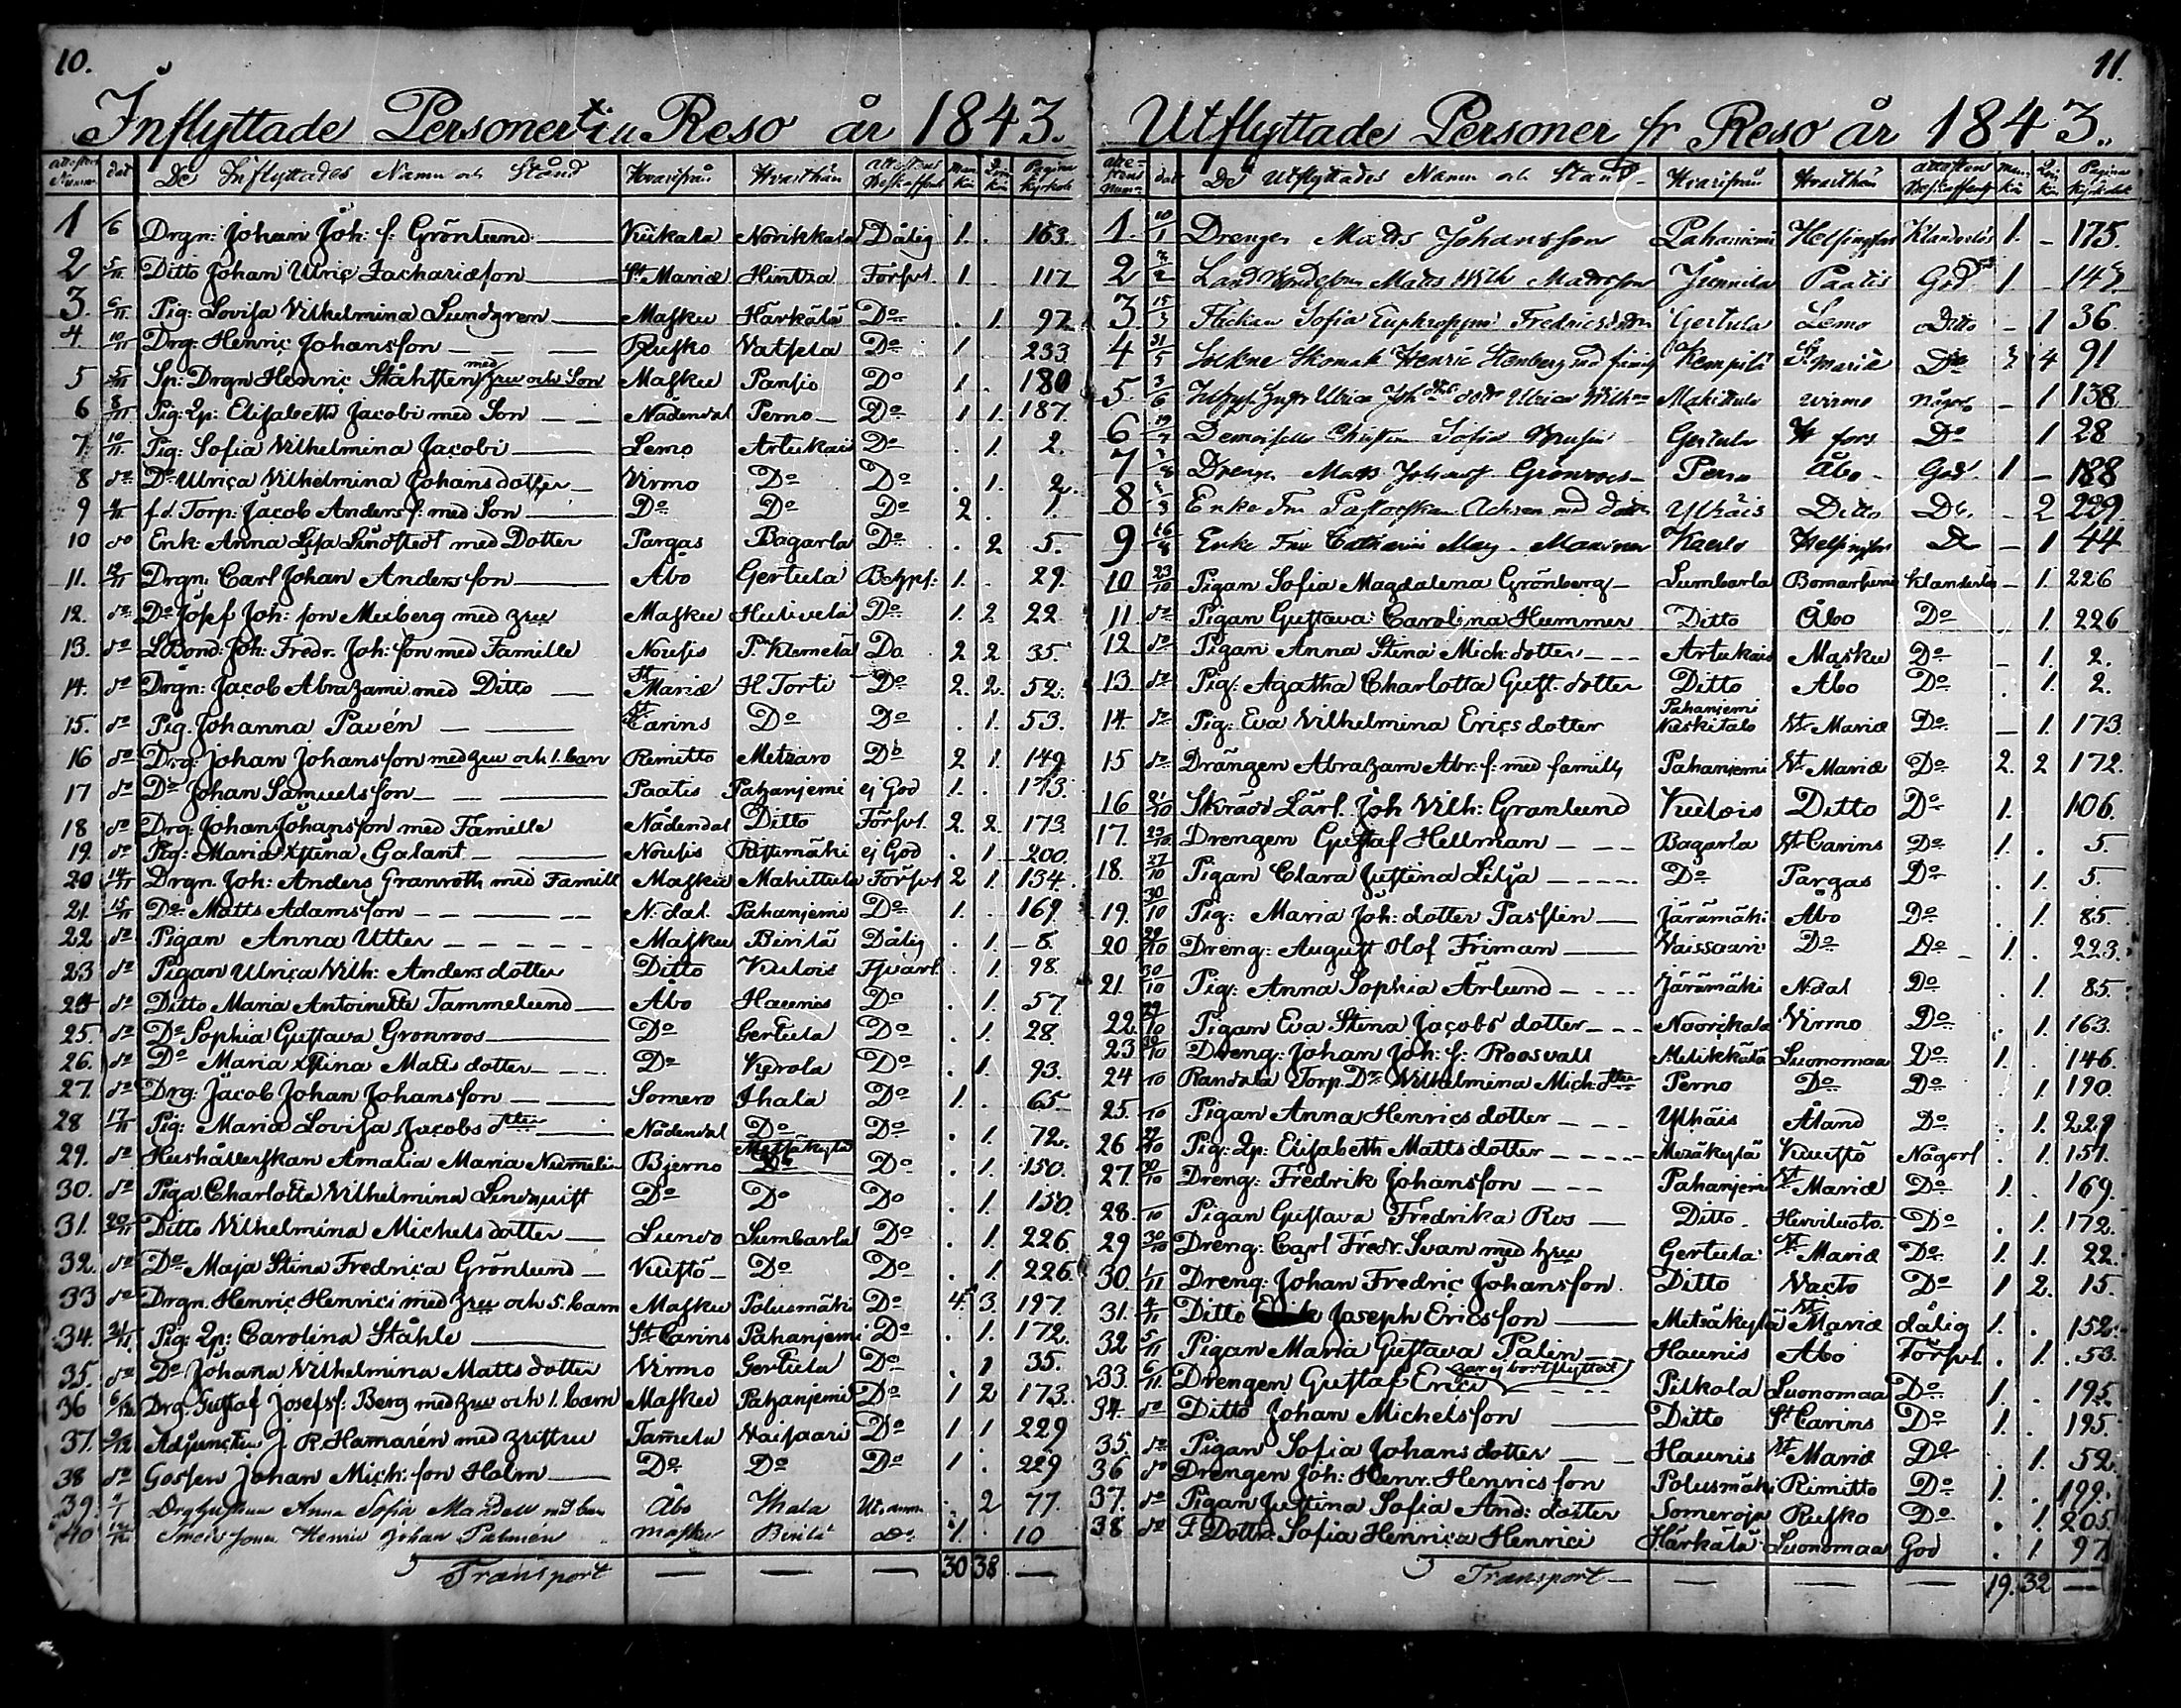 10.
Inflyttade Personer till Reso år 1843.
Attestens Numer dat De Inflyttades Namn och Stånd Hvarifrån Hvarthän Attestens Beskaffenh Man kön Qvin kön Pagina Kyrkob
1 6 Drgn: Johan Joh: f. Grönlund Kiikala Norikkala Dålig 1. . 163.
2 5/11 Ditto Johan Ulric Zachariæson St Mariæ Hintza Försvl. 1. . 117
3. 6/11 Pig: Lovisa Vilhelmina Lundgren Masku Härkälä Do . 1. 97.
4. 10/11 Drg: Henric Johansson Rusko Vatsela Do 1 233
5 5/11 Sp: Drgn Henric Ståhlsten med hru och Son Masku Pansio Do 1. . 180
6 8/11 Pig: Qp: Elisabeth Jacobi med Son Nådendal Perno Do 1 1. 187.
7. 10/11 Pig: Sofia Vilhelmina Jacobi Lemo Artukais Do . 1. 2.
8 do Do Ulrica Vilhelmina Johansdotter Virmo Do Do . 1. 2.
9 11/11 f.d. Torp: Jacob Anders f: med Son Do Do Do 2 . 1.
10 do Enk: Anna Lisa Lindstedt med Dotter Pargas Bagarla Do . 2 5.
11. 12/11 Drgn: Carl Johan Andersson Åbo Gertula Betzpf: 1. . 29.
12. do Do Josef Joh: son Meiberg med hru Masku Hulivela Do 1. 2 22
13. do LBond: Joh: Fredr. Joh: son med Famille Nousis P. Klemelä Do 2 2 35.
14. do Drgn: Jacob Abrahami med Ditto St Mariæ H Torti Do 2. 2. 52.
15. do Pig. Johanna Pavén St Carins Do Do . 1. 53.
16 do Drg: Johan Johansson med hru och 1. barn Rimitto Metzaro Do 2 1 149
17 do Do Johan Samuelsson Paatis Pahanjemi ej God 1. . 173.
18 do Drg: Johan Johansson med Famille Nådendal Ditto Försvl. 2. 2. 173
19. do Pig: Maria Xstina Galant Nousis Pissimäki ej God . 1 200.
20 14/11 Drgn. Joh: Anders Granroth med Famill Masku Mahittula Försvl 2 1. 134.
21. 15/11 Do Matts Adamsson N:dal. Pahanjemi Do 1. . 169.
22 do Pigan Anna Utter Masku Birilä Dålig . 1. 8.
23 do Pigan Ulrica Vilh: Andersdotter Ditto Kulois . 1. 98.
24 do Ditto Maria Antoinetta Tammelund Åbo Haunis Do . 1. 57.
25. do Do Sophia Gustava Gronroos Do Gertula Do . 1. 28.
26. do Do Maria Xstina Matts dotter Do Kerola Do . 1. 93.
27. do Drg: Jacob Johan Johansson Somero Ihala Do 1. . 65
28 17/11 Pig: Maria Lovisa Jacobs dtter Nådendal Do Do . 1. 72.
29. do Hushållerskan Amalia Maria Numelin Bjerno Metsäkylä Do Do . 1. 150.
30. do Piga Charlotta Vilhelmina Lindquist Do Do Do . 1. 150.
31. 20/11 Ditto Vilhelmina Michelsdotter Lundo Lumbarla Do . 1. 226
32. do Do Maja Stina Fredrica Grönlund Kustö Do Do . 1. 226.
33 do Drgn. Henric Henrici med hru och 5. barn Masku Polusmäki Do 4. 3. 197.
34. 24/11 Pig: Qp: Carolina Ståhle St Carins Pahanjemi Do . 1. 172.
35. do Do Johana Vilhelmina Matts dotter Virmo Gertula Do . 1 35.
36 6/12 Drg: Gustaf Josefsf: Berg med hru och 1. barn Masku Pahanjemi Do 1 2 173.
37. 9/12 Adjuncten J. R. Hamarén med hustru Tamela Vaisaari Do 1 1 229
38 do Gossen Johan Mich: son Holm Do Do Do 1 . 229
39. Anna Sofia Åbo Ihala . 2 77.
40 Henric Johan Palmen Masku Birilä do. 1. 10
Transport 30 38
11.
Utflyttade Personer fr Reso år 1843.
Attestens Num: dat De Utflyttades Namn och Stand Hvarifrån Hvarthän Attestens Beskaffenh Man kön Qvin kön Pagina Kyrkobok
1. 10/1 Drengen Matts Johansson Pahaniemi Helsingfors Klanderlös 1. - 175.
2 Matts Wilh Mattsson Junnila Paatis God 1 - 143
3. 15/3 Flickan Sofia Fredricsdotter Gertula Lemo Ditto - 1 36.
4 31/5 Sockne Skomak Henric Stenberg med familj Kempilä St Mariæ Do 3 4 91
5. 3/6 Ulrica Mahittula Wirmo - 1 138
6 Demoiselle Sofia Gertula H fors Do 1 28
7 Dreng Matts Johansf Grönroos Perno Åbo God 1 - 188
8 Enke Fru med dotter Ylhäis Ditto Do. - 2 229.
9 16/8 Enke Fru Catharina Helsingfors Do - 1 44
10 23/10 Pigan Sofia Magdalena Grönberg Lumbarla Bomarsund Klanderlös - 1. 226
11 do Pigan Gustava Carolina Hummer Ditto Åbo Do . 1. 226
12 do Pigan Anna Stina Mich: dotter Artukais Masku Do - 1. 2.
13 do Pig: Agatha Charlotta Gust. dotter Ditto Åbo Do . 1. 2.
14. do Pig: Eva Vilhelmina Erics dotter Pahanjemi Keskitalo St Mariæ Do - 1 173
15 do Drängen Abraham Abr: f: med famille Pahanjemi St Mariæ Do 2. 2 172.
16 21/10 Skrädd Lärl. Joh Vilh: Granlund Kulois Ditto Do 1. 106.
17. 23/10 Drengen Gustaf Hellman Bagarla St Carins Do 1. . 5.
18. 27/10 Pigan Clara Justina Lilja Do Pargas Do . 1. 5.
19. 30/10 Pig: Maria Joh: dotter Pastlin Järämäki Åbo Do . 1. 85.
20 29/10 Dreng: August Olof Friman Vaissaari Do Do 1. . 223.
21. 30/10 Pig: Anna Sophia Ärlund Järämäki N:dal Do . 1. 85.
22. 29/10 Pigan Eva Stina Jacobs dotter Noorikala Virmo Do . 1. 163.
23 30/10 Dreng: Johan Joh: f: Roosvall Melikkälä Luonomaa Do 1. . 146.
24 10 Randala Torp. Do Wilhelmina Mich: dtter Perno Do Do . 1. 190.
25. /10 Pigan Anna Henricsdotter Ylhäis Åland Do . 1. 229
26 29/10 Pig: Qp: Elisabeth Mattsdotter Mezäkylä Kuustö Någorl . 1. 151.
27. 30/10 Dreng: Fredrik Johansson Pahanjemi St Mariæ Do 1. . 169.
28. /10 Pigan Gustava Fredrika Ros Ditto Hirviluoto Do . 1. 172.
29 30/10 Dreng: Carl Fredr. Svan med hru Gertula St Mariæ Do 1. 1. 22.
30. 1/11 Dreng: Johan Fredric Johansson Ditto Vacto Do 1 2. 15.
31. 4/11 Ditto Joseph Ericsson Metsäkylä St Mariæ dålig 1. . 152.
32 5/11 Pigan Maria Gustava Palin Haunis Åbo Försvl. . 1. 53.
33. 6/11 Drengen Gustaf Erici (har ej bortflyttat) Piikala Luonomaa Do 1. . 195.
34. do Ditto Johan Michelsson Ditto St Carins Do 1. . 195.
35. do Pigan Sofia Johans dotter Haunis St Mariæ Do . 1. 52.
36 do Drengen Joh: Henr. Henricsson Polusmäki Rimitto Do 1. . 199.
37. do Pigan Justina Sofia And: dotter Someroja Rusko Do . 1. 205.
38 do F. Dottr. Sofia Henrica Henrici Härkälä Luonomaa God . 1. 97
Transport 19. 32